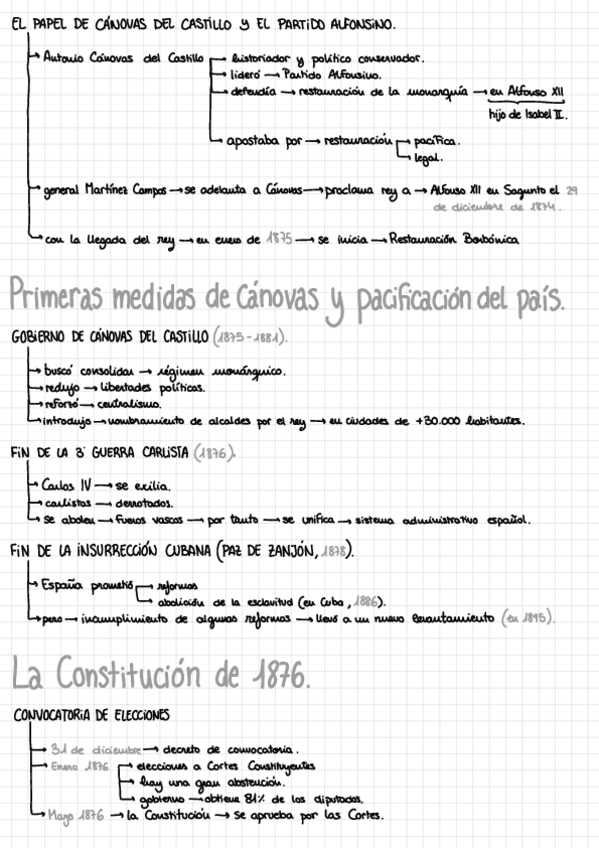 EL PAPEL DE CÁNOVAS DEL CASTILLO y EL PARTIDO ALFONSINO.
Antonio Cánovas del Castillo → historiador y político conservador.
→ lideró → Partido Alfonsino.
→ defendía → restauración de la monarquía → en Alfonso XII
hijo de Isabel II.
→ apostaba por → restauración → pacífica.
→ legal.
→ general Martínez Campos → se adelanta a Cánovas → proclama rey a → Alfonso XII en Sagunto el 29
de diciembre de 1874.
→ con la llegada del rey → en enero de 1875 → se inicia → Restauración Borbónica
Primeras medidas de Cánovas y pacificación del país.
GOBIERNO DE CÁNOVAS DEL CASTILLO (1875-1881).
→ buscó consolidar → régimen monárquico.
→ redujo → libertades políticas.
→ reforzó → centralismo.
→ introdujo → nombramiento de alcaldes por el rey → en ciudades de +30.000 habitantes.
FIN DE LA 3ª GUERRA CARLISTA (1876).
→ Carlos IV → se exilia.
→ carlistas → derrotados.
→ se abolen → fueros vascos → por tanto → se unifica → sistema administrativo español.
FIN DE LA INSURRECCIÓN CUBANA (PAZ DE ZANJÓN, 1878).
→ España prometió → reformas
→ abolición de la esclavitud (en Cuba, 1886).
→ pero → incumplimiento de algunas reformas → llevó a un nuevo levantamiento (en 1895).
La Constitución de 1876.
CONVOCATORIA DE ELECCIONES
→ 31 de diciembre → decreto de convocatoria.
→ Enero 1876 → elecciones a Cortes Constituyentes
→ hay una gran abstención.
→ gobierno → obtiene 81% de los diputados.
→ Mayo 1876 → la Constitución → se aprueba por las Cortes.